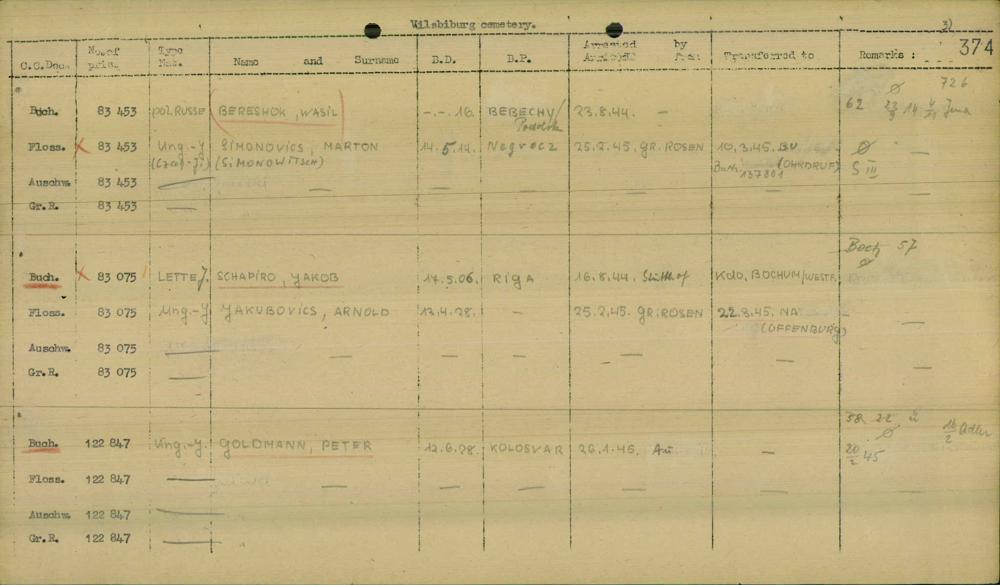 Vilsbiburg cemetery.
3)
374
C.C.Doc. No.of pris. Type Nat. Name and Surname B.D. B.P. Arrested by Arrived from Transferred to Remarks :
726
Buch. 83 453 pol.RUSSE BERESHOK, WASIL -.-.16. BEBECHY/ 23.8.44. — 62 23/9 14 Jena
Podolsk
Floss. 83 453 Ung.-J SIMONOVICS, MARTON 14.5.14. Negrocz 25.2.45. GR. ROSEN 10.3.45. BU. Ø
(SIMONOWITSCH) Buch. (OHRDRUF) S III
137801
Auschw. 83 453 — — — — — — —
Gr.R. 83 453 —
Boch 57
Ø
Buch. 83 075 LETTE J. SCHAPIRO, JAKOB 17.5.06. RIGA 16.8.44. Stutthof Kdo. BOCHUM/WESTF.
Floss. 83 075 Ung.-J JAKUBOVICS, ARNOLD 12.4.28. — 25.2.45. GR. ROSEN 22.3.45. NA —
(OFFENBURG)
Auschw. 83 075 — — — — — — —
Gr.R. 83 075 — —
58 22 ü
Ø 16/2 Adler
Buch. 122 847 Ung.-J. GOLDMANN, PETER 12.6.28. KOLOSVAR 26.1.45. Au — 20/2 45
Floss. 122 847 — — — — — — —
Auschw. 122 847 —
Gr.R. 122 847 —